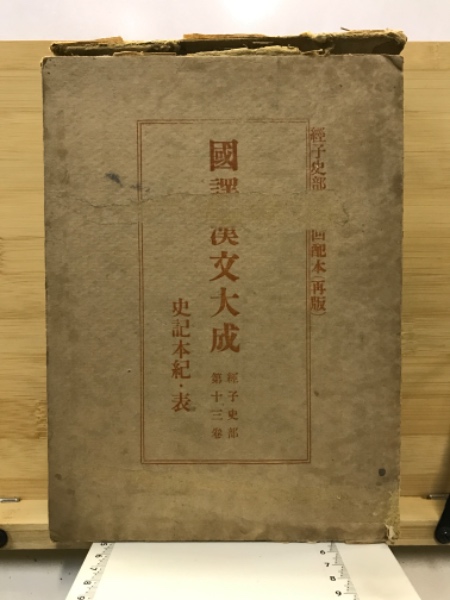 經子史部 回配本(再版)
國譯漢文大成
經子史部
第十三卷
史記本紀・表